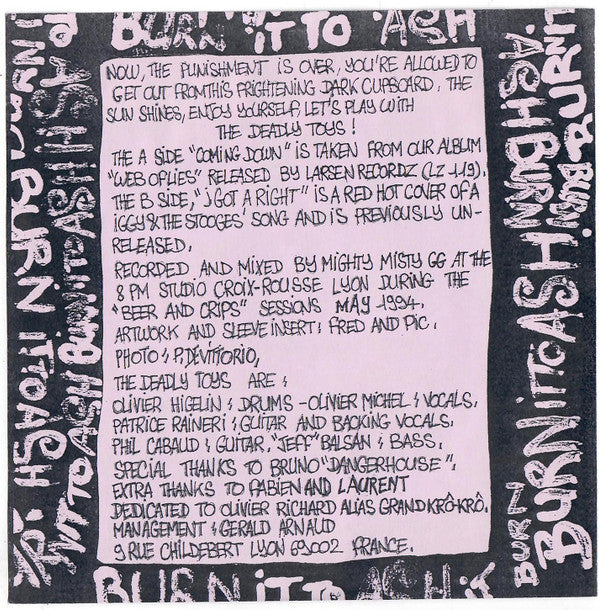 BURN iT TO ASH
NOW, THE PUNISHMENT iS OVER, YOU'RE ALLOWED TO
GET OUT FROM THIS FRIGHTENING DARK CUPBOARD. THE
SUN SHINES, ENJOY YOURSELF, LET'S PLAY WITH
THE DEADLY TOYS!
THE A SIDE "COMING DOWN" IS TAKEN FROM OUR ALBUM
"WEB OF LIES" RELEASED BY LARSEN RECORDZ (LZ 119).
THE B SIDE, "J GOT A RIGHT" IS A RED HOT COVER OF A
IGGY & THE STOOGES' SONG AND IS PREVIOUSLY UN-
RELEASED.
RECORDED AND MIXED BY MIGHTY MISTY GG AT THE
8 PM STUDIO CROIX-ROUSSE LYON DURING THE
"BEER AND CRIPS" SESSIONS MAY 1994.
ARTWORK AND SLEEVE INSERT: FRED AND PIC.
PHOTO: P. DEVITTORIO,
THE DEADLY TOYS ARE:
OLIVIER HIGELIN: DRUMS - OLIVIER MICHEL: VOCALS.
PATRICE RAINERI: GUITAR AND BACKING VOCALS.
PHIL CABAUD: GUITAR, "JEFF" BALSAN: BASS.
SPECIAL THANKS TO BRUNO "DANGERHOUSE".
EXTRA THANKS TO FABIEN AND LAURENT
DEDICATED TO OLIVIER RICHARD ALIAS GRAND KRÔ-KRÔ.
MANAGEMENT: GERALD ARNAUD
9 RUE CHILDEBERT LYON 69002 FRANCE.
BURN iT TO ASH
BURN iT TO ASH
BURN iT TO ASH
BURN
BURN iT TO ASH